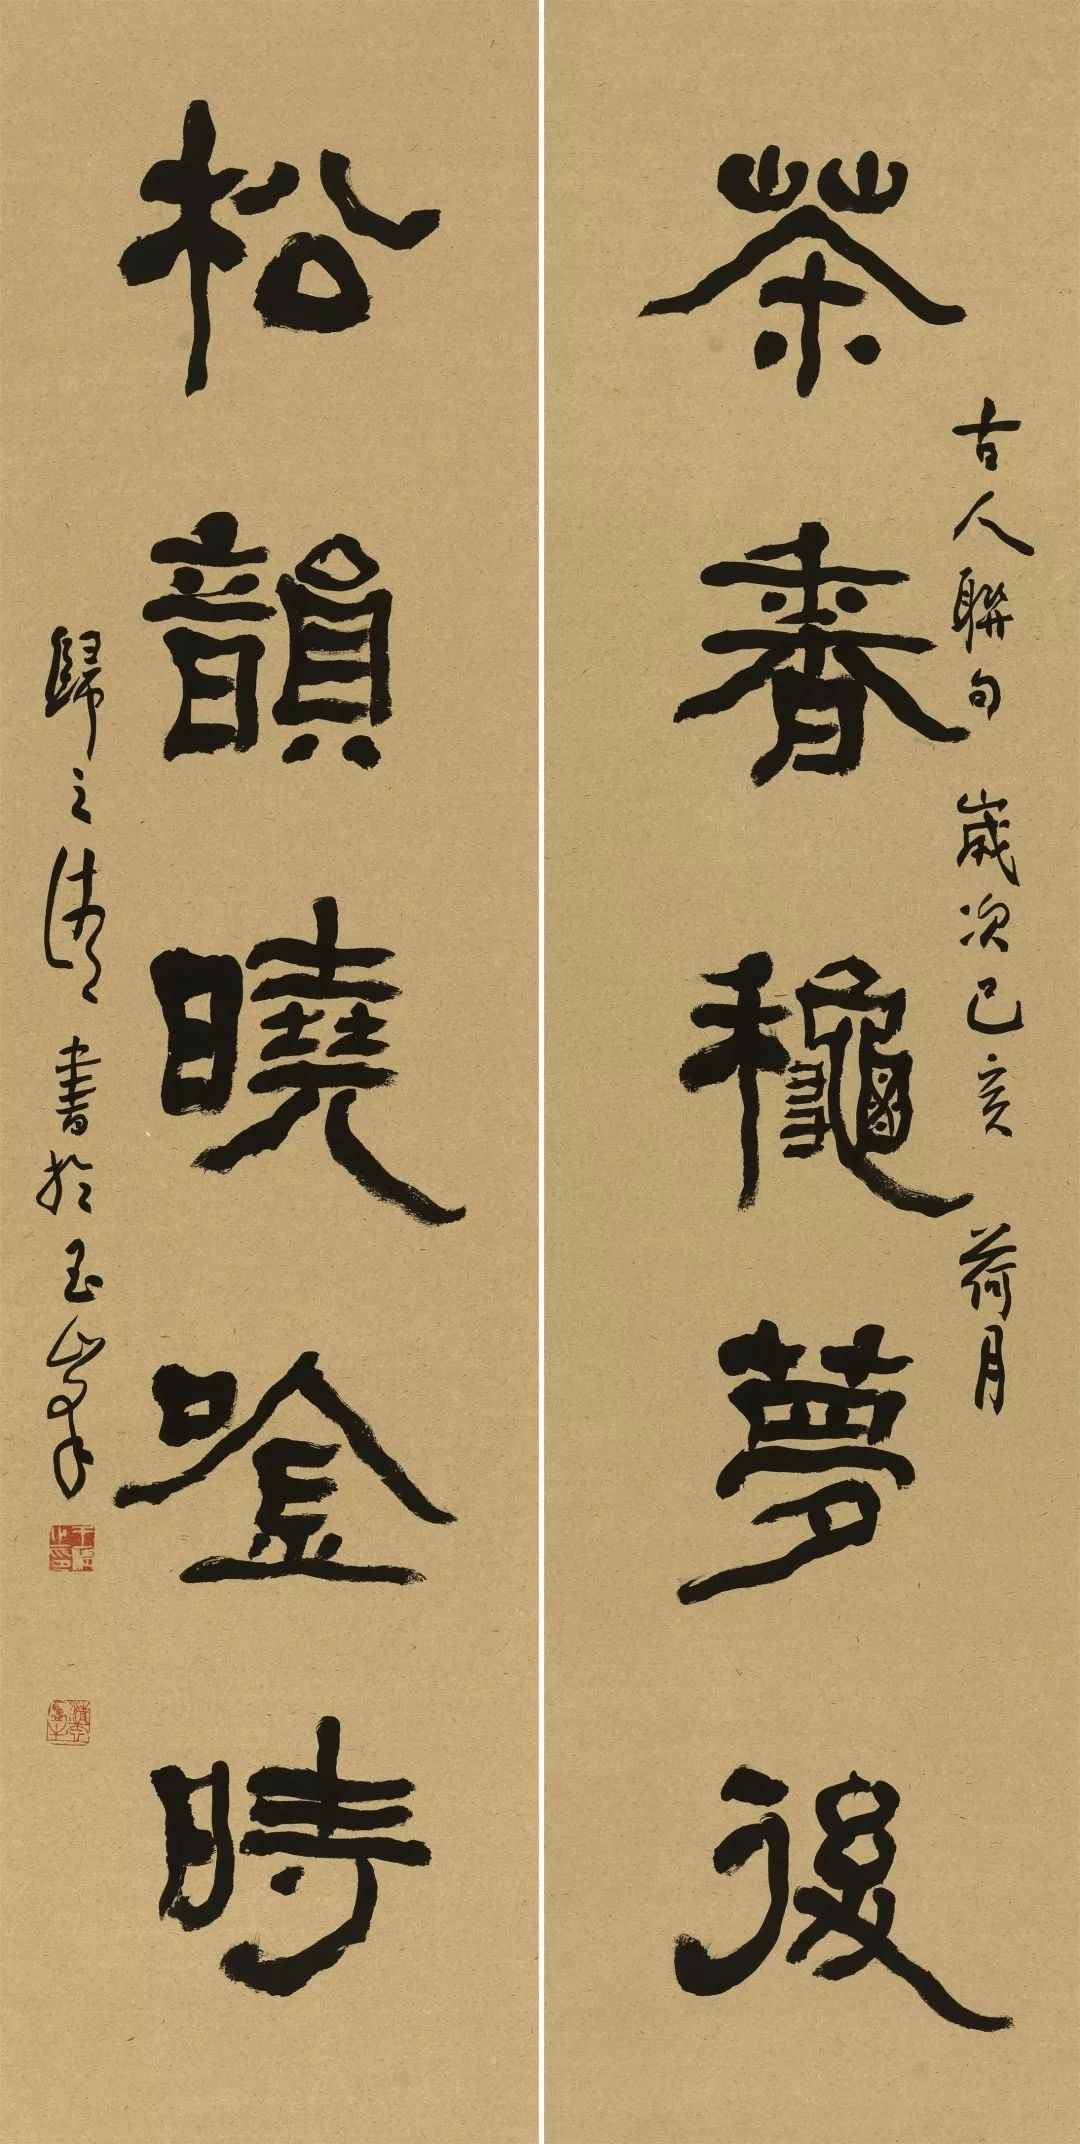 茶香龝夢後
古人聯句 歲次己亥 荷月
松韻曉唫時
歸之清 書於玉山峯